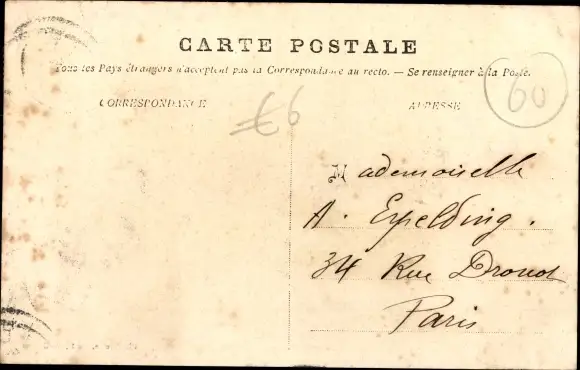 CARTE POSTALE
Tous les Pays étrangers n'acceptent pas la Correspondance au recto. — Se renseigner à la Poste.
CORRESPONDANCE
ADRESSE
£6
60
Mademoiselle
A. Erpelding.
34 Rue Drouot
Paris